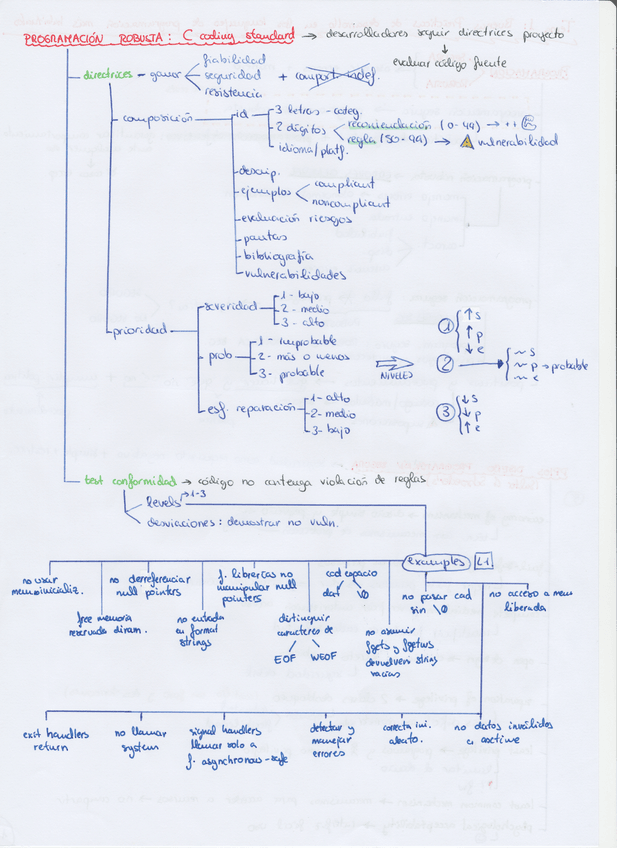 PROGRAMACIÓN ROBUSTA: C coding standard → desarrolladores seguir directrices proyecto
↓
evaluar código fuente
directrices - ganar
fiabilidad
seguridad + comport. indef.
resistencia
composición
id
3 letras - categ.
2 dígitos
recomendación (0-49) → ++
regla (50-99) → ⚠ vulnerabilidad
idioma/platf.
descrip.
ejemplos
compliant
noncompliant
evaluación riesgos
pautas
bibliografía
vulnerabilidades
prioridad
severidad
1- bajo
2- medio
3- alto
prob
1- improbable
2- más o menos
3- probable
esf. reparación
1- alto
2- medio
3- bajo
NIVELES
① ↑ s
↑ p
↓ e
② → ~ s
~ p → probable
~ e
③ ↓ s
↓ p
↑ e
test conformidad → código no contenga violación de reglas
levels → 1-3
desviaciones: demostrar no vuln.
examples L1
no usar mem inicializ.
free memoria
reservada dinam.
no derreferenciar
null pointers
no entrada
en format
strings
f. librerías no
manipular null
pointers
cad espacio
dat \0
distinguir
caracteres de
EOF WEOF
no asumir
fgets y fgetws
devuelven strings
vacías
no pasar cad
sin \0
no acceso a mem
liberada
exit handlers
return
no llamar
system
signal handlers
llamar solo a
f. asynchronous-safe
detectar y
manejar
errores
correcta ini.
aleato.
no datos inválidos
a asctime